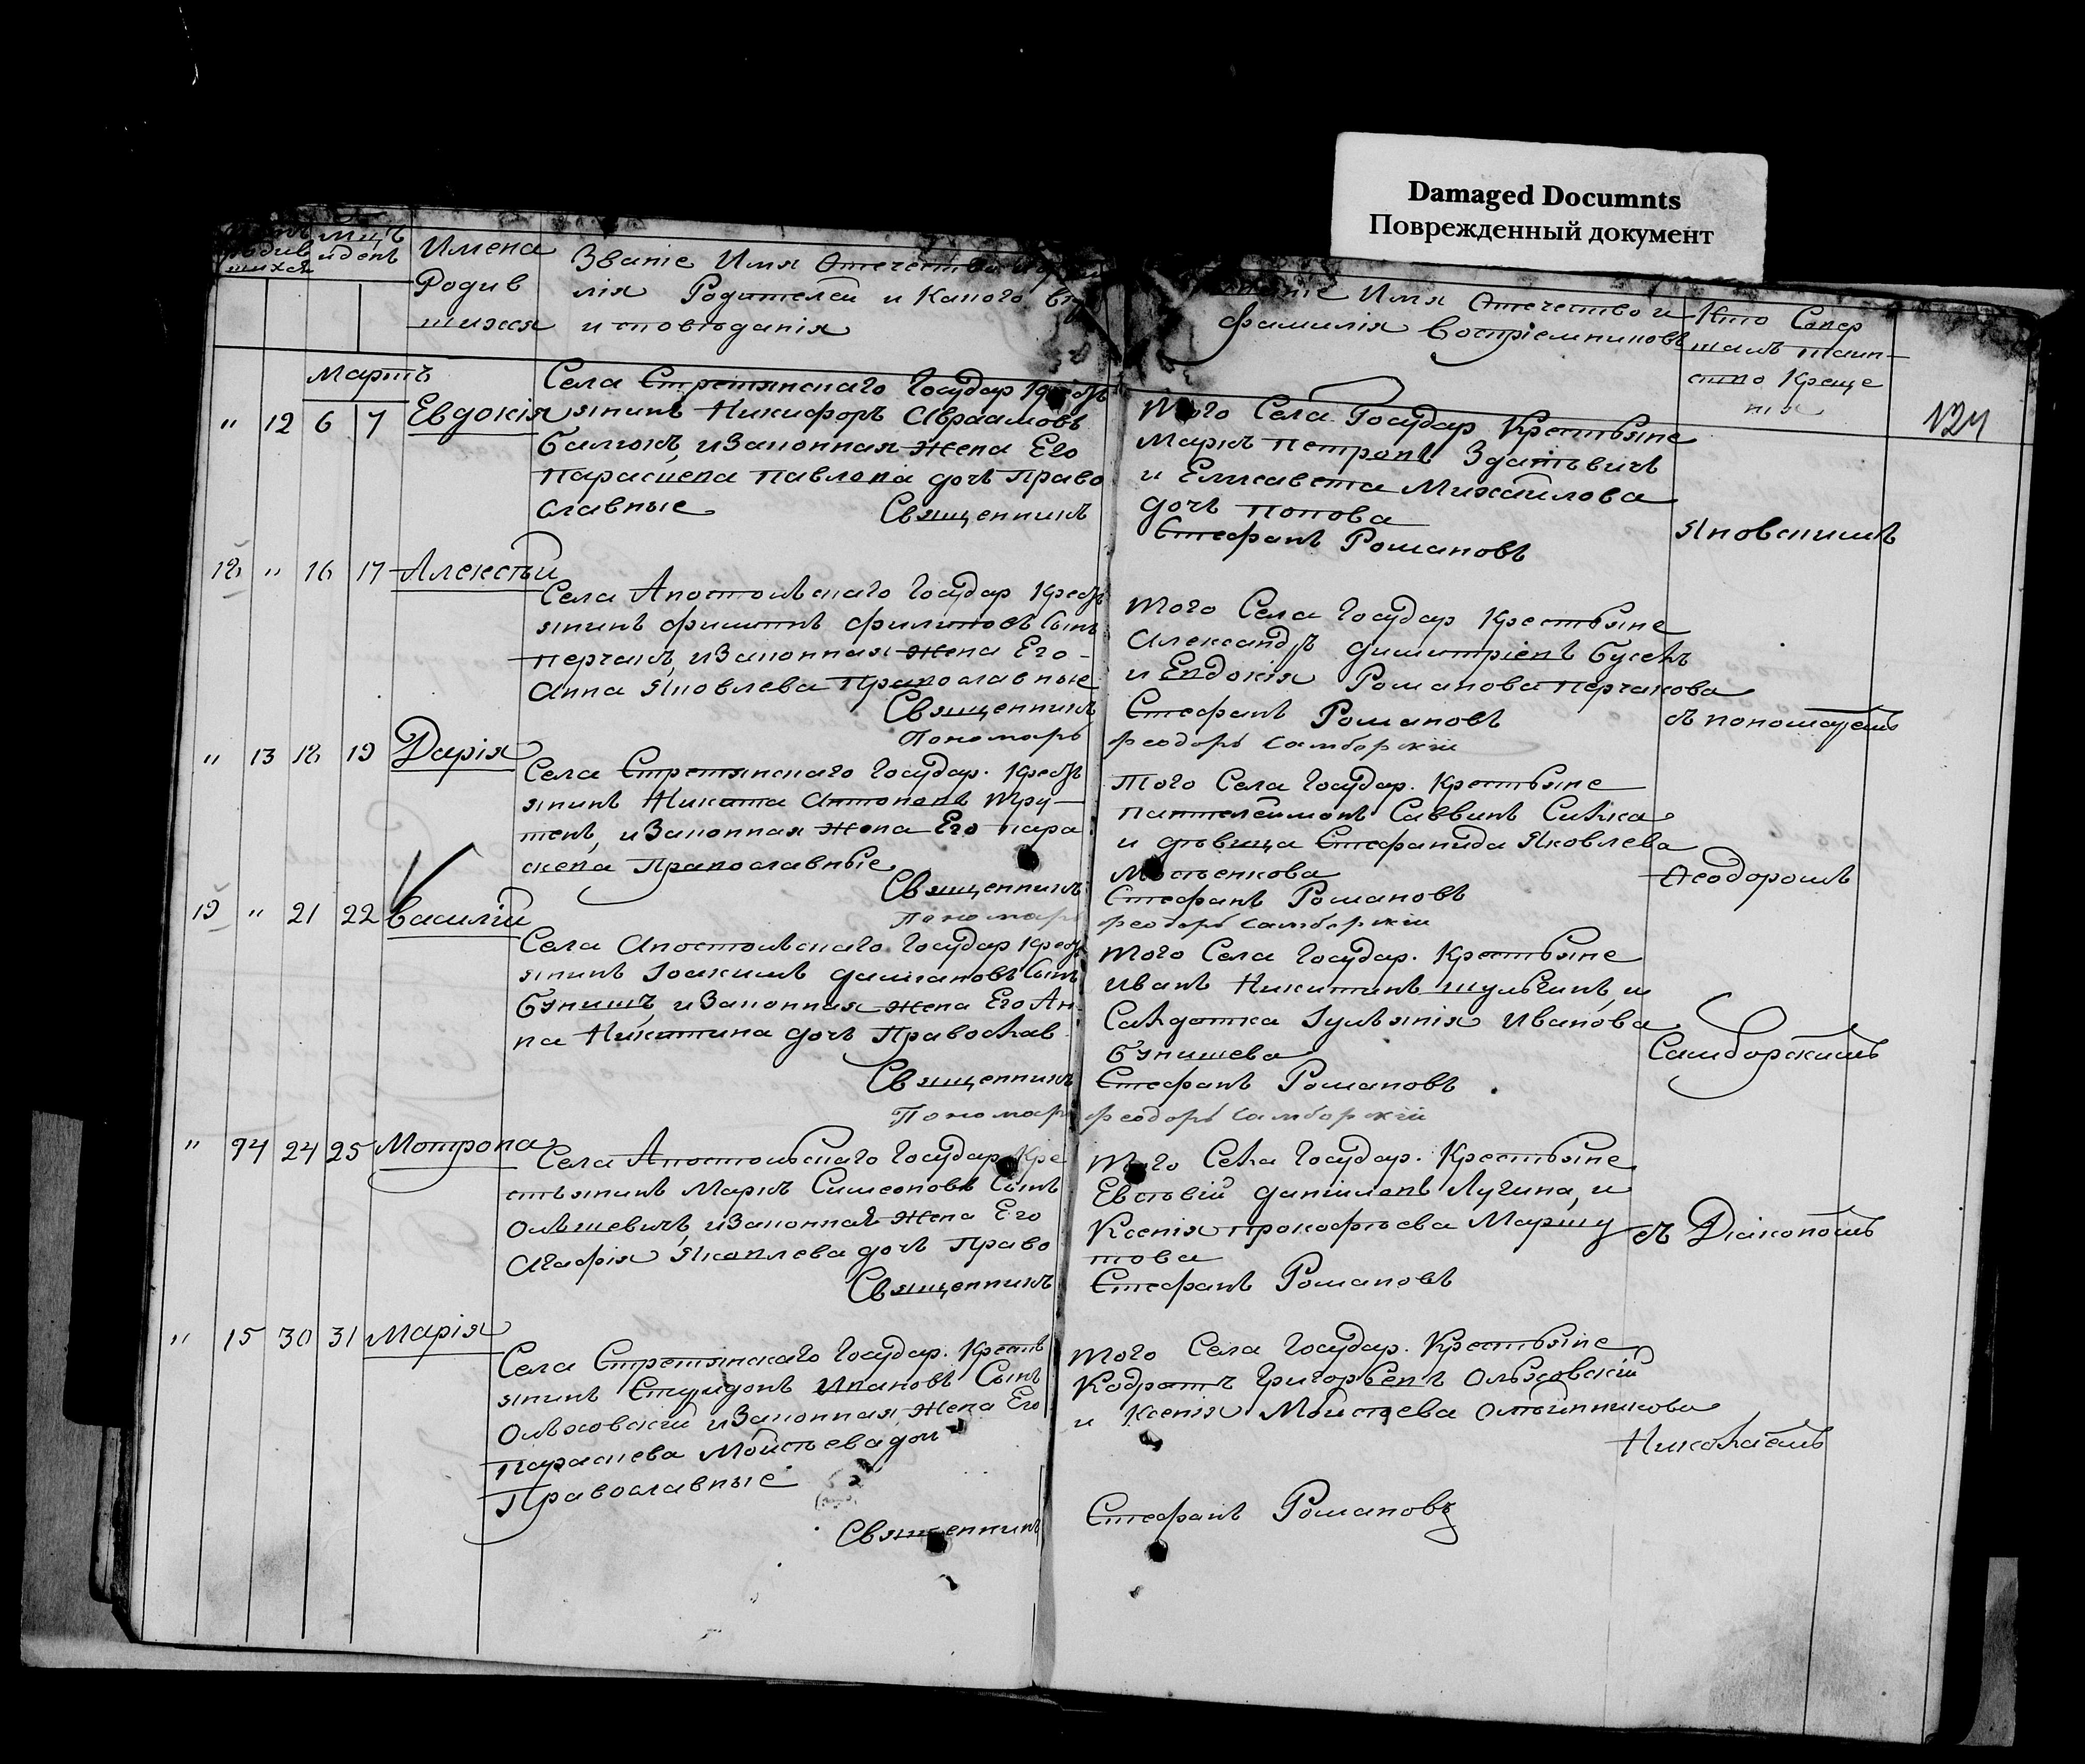 Damaged Documnts
Поврежденный документ
мцъ
и день
Имена
Родив
шихся
Званіе Имя Отечество и
лія Родителей и Какого въ
исповѣданія
Имя Отечество и
фамилія Воспріемниковъ
Кто Совер
шалъ таин-
ство Креще
нія
124
Мартъ
" 12 6 7 Евдокія
Села Стретянскаго Государ Крестъ
янинъ Никифоръ Авраамовъ
и Законная жена Его
Параскева Павлова дочь Право
славные
Священникъ
того Села Государ Крестьяне
Маркъ Петровъ Здатевичъ
и Елисавета Михайлова
дочь Попова
Стефанъ Романовъ
Яновскимъ
18 " 16 17 Алексѣй
Села Апостольскаго Государ Крест
янинъ филиппъ филиповъ Сынъ
Перчакъ, и Законная жена Его
Анна Яковлева Православные
Священникъ
Пономарь
того Села Государ Крестьяне
Александръ Димитріевъ
и Евдокія Романова Перчакова
Стефанъ Романовъ
феодоръ Самборскій
съ пономаремъ
" 13 18 19 Дарія
Села Стретянскаго Государ. Крест
янинъ Никита Антоновъ Тру-
тень, и Законная жена Его Пара
скева Православные
Священникъ
Пономарь
того Села Государ. Крестьяне
Пантелеимонъ Саввинъ
и дѣвица Стефанида Яковлева
Стефанъ Романовъ
феодоръ Самборскій
Ѳеодоромъ
19 " 21 22 Василій
Села Апостольскаго Государ Крест
янинъ Іоакимъ Даміановъ Сынъ
и Законная жена Его Ан
на Никитина дочь Православ
Священникъ
Пономарь
того Села Государ. Крестьяне
Иванъ Никитинъ Шульгинъ, и
Салдатка Іуліанія Иванова
Стефанъ Романовъ
феодоръ Самборскій
Самборскимъ
" 14 24 25 Мотрона
Села Апостольскаго Государ Кре
стьянинъ Маркъ Симеоновъ Сынъ
Ольшевичъ, и Законная жена Его
Агафія Яковлева дочь Право
Священникъ
того Села Государ. Крестьяне
Евсѣвій Даніиловъ Лучина, и
Ксенія Прокофьева Маршу
това
Стефанъ Романовъ
съ Діакономъ
" 15 30 31 Марія
Села Стретянскаго Государ. Кресть
янинъ Спиридонъ Ивановъ Сынъ
Ольховскій и Законная жена Его
Параскева Мойсѣева доч
Православные
Священникъ
того Села Государ. Крестьяне
Кодратъ Григорьевъ Ольховскій
и Ксенія Мойсѣева Олейникова
Стефанъ Романовъ
Николаемъ